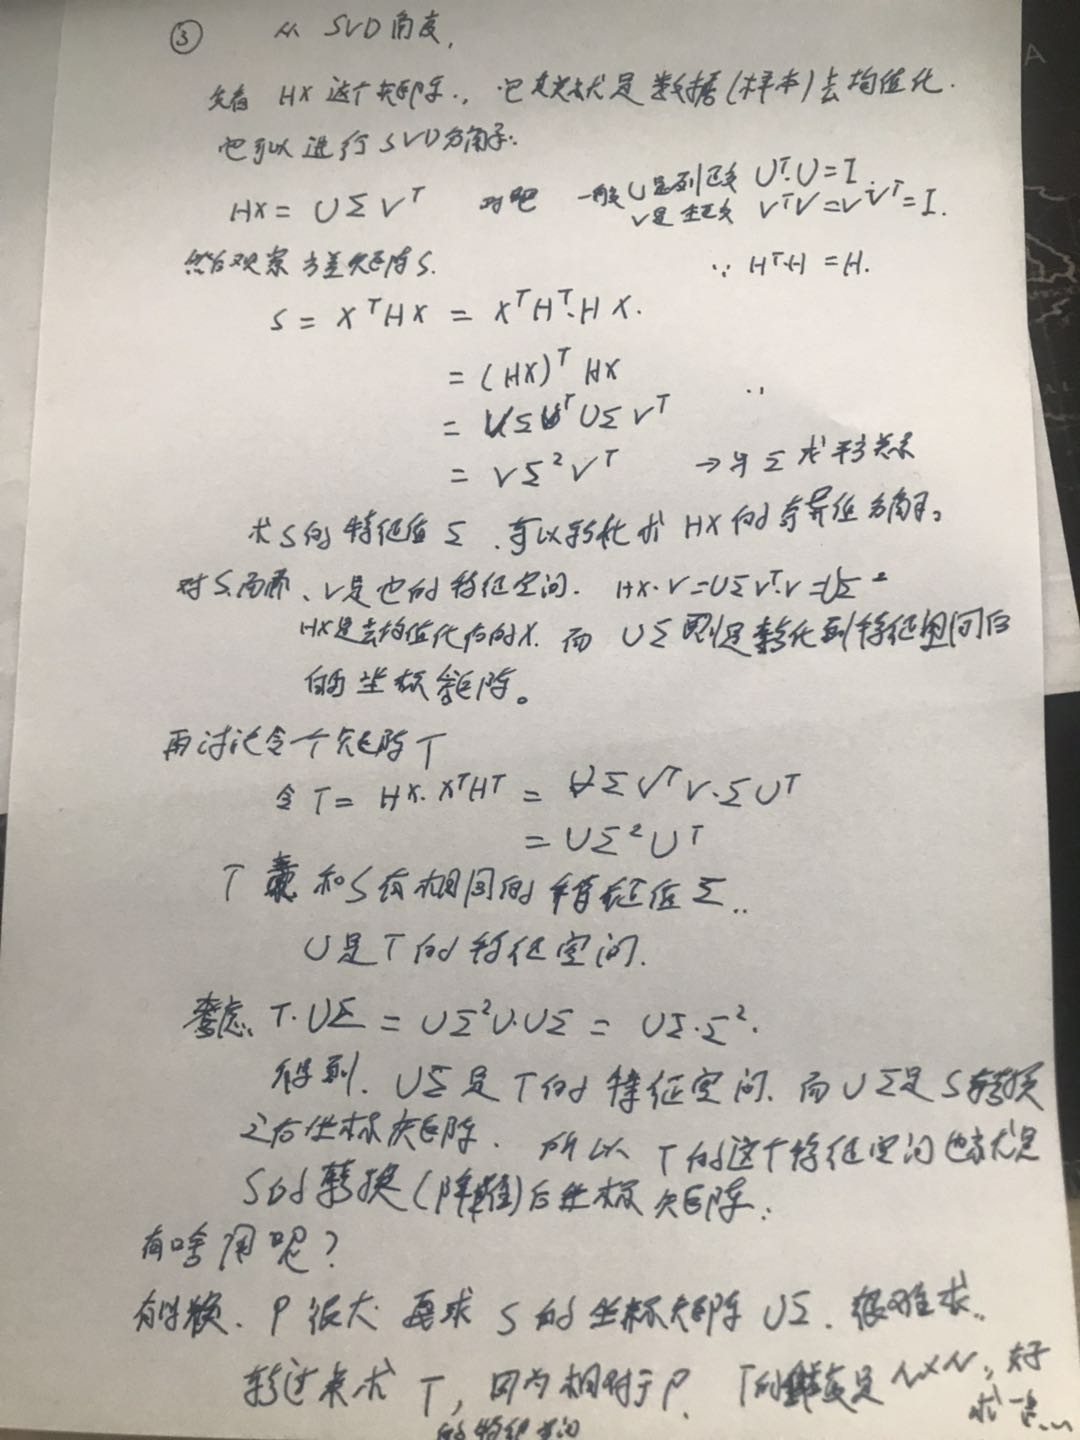 ③ 从 SVD 角度,
先看 HX 这个矩阵., 它其实就是 数据(样本)去均值化.
也可以进行SVD分解:
HX = UΣV^T 对吧 一般 U是列正交 U^T·U=I.
V是 正交 V^TV=VV^T=I.
然后观察 方差矩阵S. ∵ H^T·H = H.
S = X^THX = X^TH^T·HX.
= (HX)^T HX
= VΣU^TUΣV^T
= VΣ²V^T → 与Σ 成平方关系
求S的 特征值 Σ, 可以转化求 HX的奇异值分解。
对S而言、V是他的特征空间. HX·V=UΣV^T·V=UΣ
HX是去均值化后的X. 而 UΣ 则是转化到特征空间后
的 坐标矩阵。
再讨论 个矩阵T
令T= HX·X^TH^T = UΣV^TV·ΣU^T
= UΣ²U^T
T 和S有相同的特征值Σ..
U是T的特征空间.
考虑 T·UΣ = UΣ²U·UΣ = UΣ·Σ².
得到. UΣ是T的特征空间. 而UΣ是S转换
之后坐标矩阵. 所以 T的这个特征空间也就是
S的转换(降维)后坐标矩阵.
有啥用呢?
有时候. P很大 要求 S的坐标矩阵 UΣ. 很难求..
转过来求 T, 因为相对于P. T的 是N×N, 好
求一点...
的特征空间